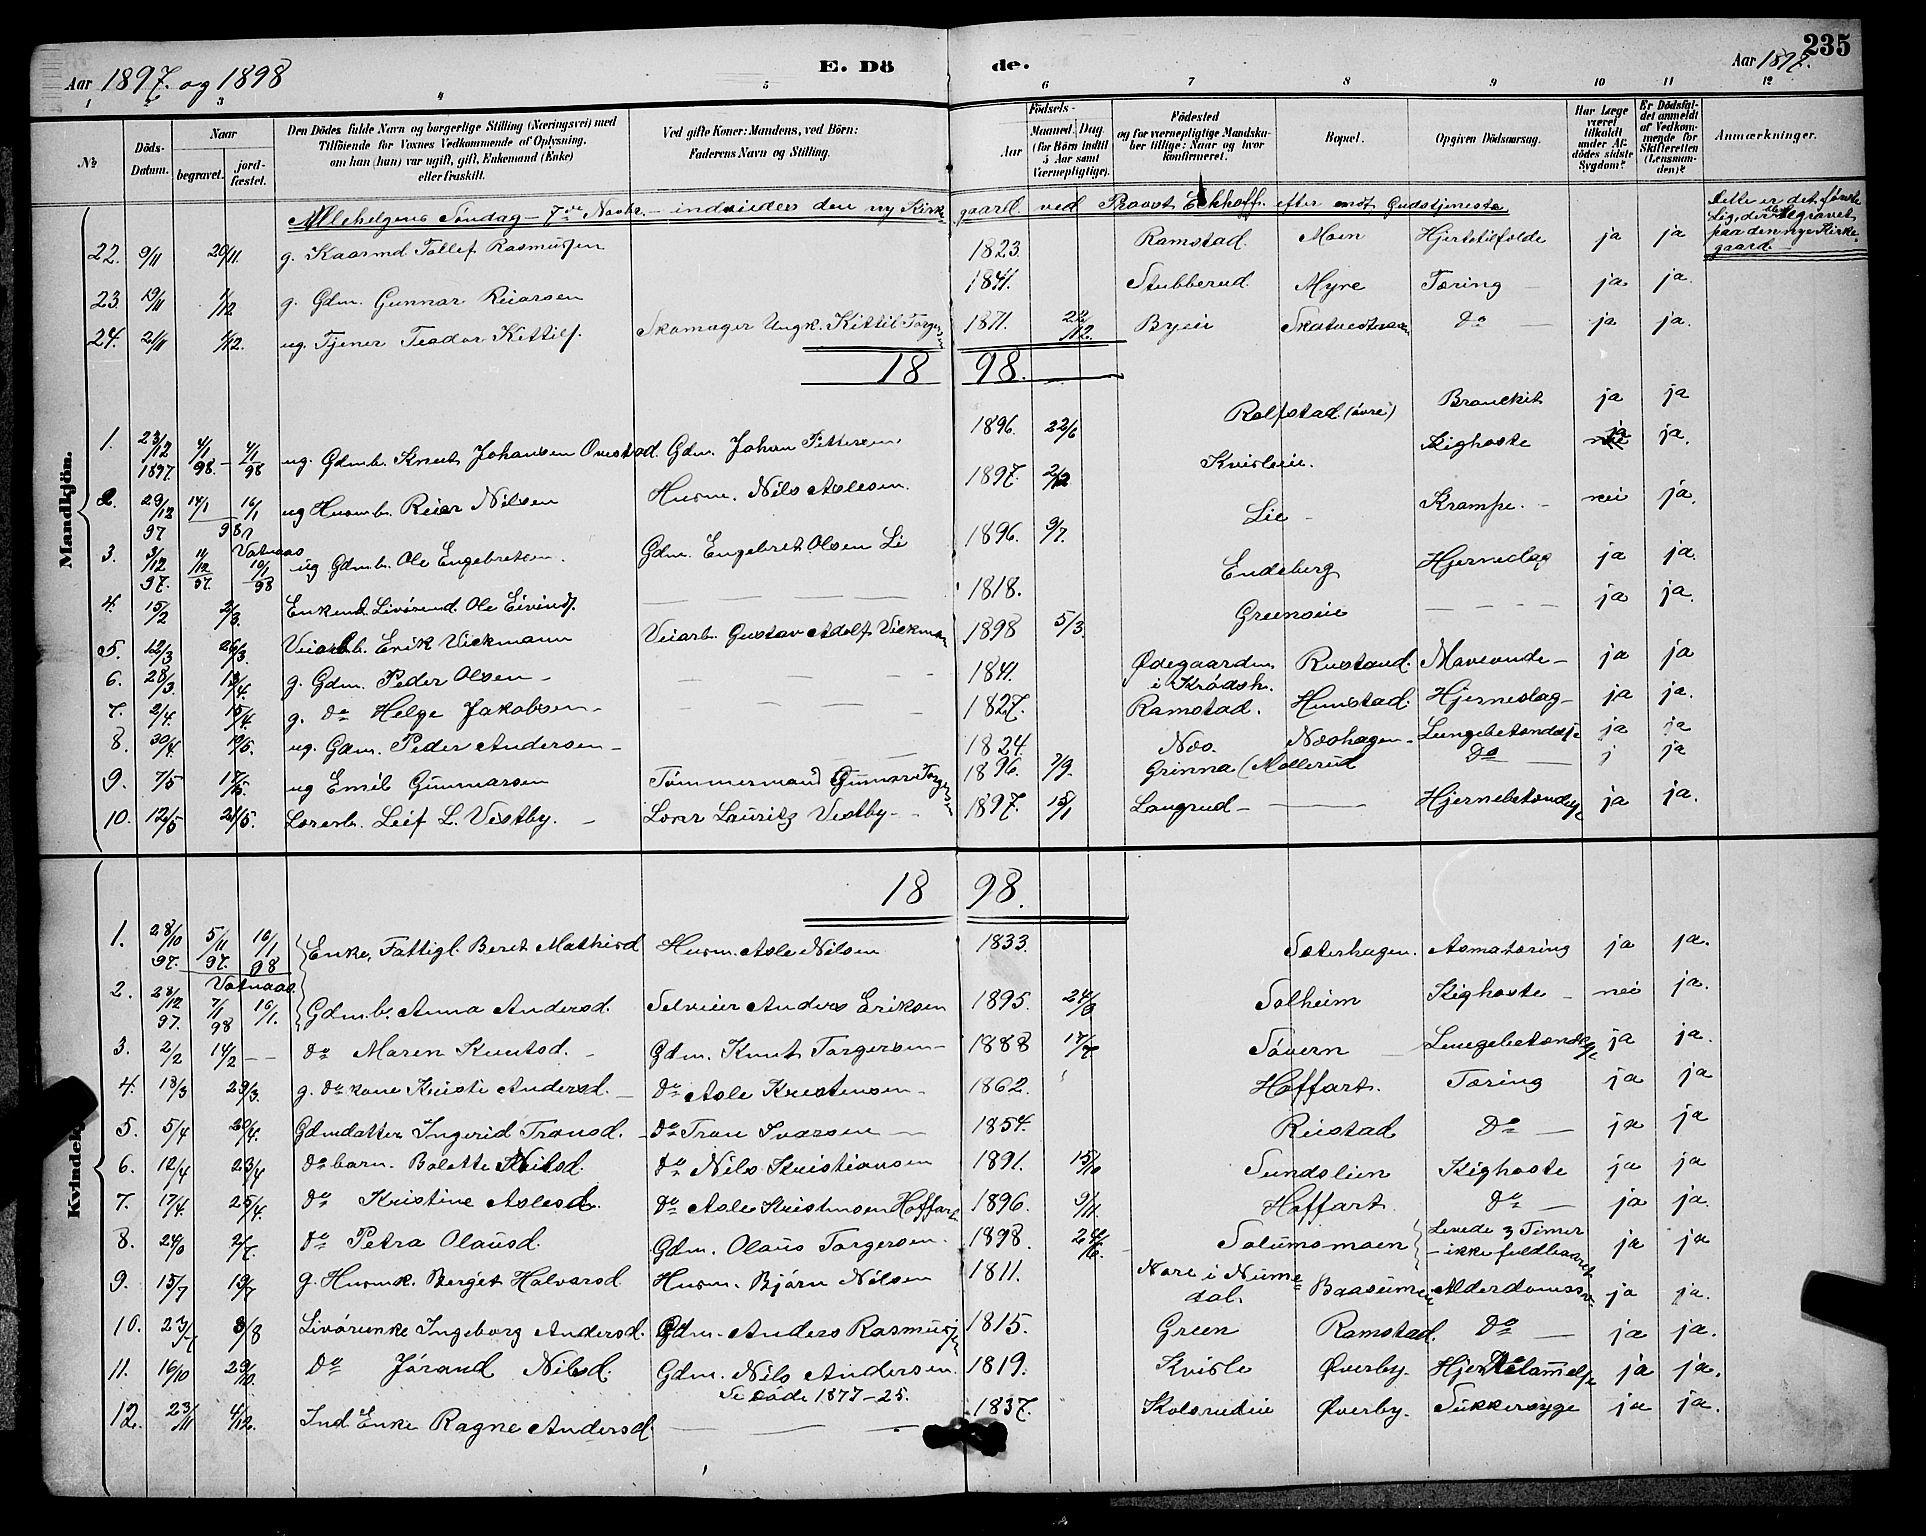 235
Aar 1897. og 1898
E. Dö
de.
Aar 1897.
1 2 3 4 5 6 7 8 9 10 11 12
No
Döds-Datum.
Naar
begravet.
jord-fæstet.
Den Dödes fulde Navn og borgerlige Stilling (Næringsvei) med
Tilföiende for Voxnes Vedkommende af Oplysning,
om han (hun) var ugift, gift, Enkemand (Enke)
eller fraskilt.
Ved gifte Koner: Mandens, ved Börn:
Faderens Navn og Stilling.
Födsels-
Aar
Maaned. Dag.
(for Börn indtil
5 Aar samt
Værnepligtige).
Födested
og for værnepligtige Mandska-
ber tillige: Naar og hvor
konfirmeret.
Bopæl.
Opgiven Dödsaarsag.
Har Læge
været
tilkaldt
under Af-
dödes sidste
Sygdom?
Er Dödsfal-
det anmeldt
af Vedkom-
mende for
Skifteretten
(Lensman-
den)?
Anmærkninger.
Mandkjön.
Allehelgens Søndag – 7de Novbr. – indviedes den ny Kirkegaard ved Provst Eckhoff efter endt Gudstjeneste
Dette er det første
Lig, der blev begravet
paa den nye Kirke-
gaard
22. 9/11 20/11. g. Kaarmd Tollef Rasmussen 1823. Ramstad. Moen Hjertetilfælde ja ja
23. 19/11 1/12 g. Gdm. Gunnar Reiarsen 1841. Stubberud. Myre Tæring – ja ja.
24. 21/11 1/12. ug. Tjener Teodor Kittils. Skomager Ungk. Kittil Torgersen 1871. 22/12. Byeie Do – ja ja.
1898.
1. 23/12 1897. 4/1 98. – 4/1 98 ug. Gdmb. Knut Johansen Ovestad. Gdm. Johan Pettersen 1896. 22/6 Rolfstad (övre) Bronckit ja ja
2. 29/12 97 14/1 16/1 98 ug Husmb. Reiar Nilsen Husm. Nils Aslesen. 1897. 2/12 Kvisleie. Kighoste ja ja.
3. 3/12 97. 11/12 97. Vatnaas 10/1 98 ug Gdmb. Ole Engebretsen. Gdm. Engebret Olsen Li 1896. 9/7. Lie – Krampe. – nei ja.
4. 15/2 2/3. Enkemd. Livörend Ole Eivinds. 1818. Endeberg Hjerneslag ja ja.
5. 12/3 26/3. Veiarb.b. Erik Vickmann Veiarb. Gustav Adolf Vickman 1898 5/3. Greenseie ja ja.
6. 28/3. 13/4. g. Gdm. Peder Olsen – 1841. Ødegaarden i Krødsh. Rustand. Mavevunde – ja ja
7. 2/4. 15/4. g. Do Helge Jakobsen – 1827. Ramstad. Hunstad. Hjerneslag – ja ja.
8. 30/4. 10/5. ug. Gdm. Peder Andersen – 1824. Næs. Næshagen – Lungebetændelse ja ja
9. 7/5 17/5. ug Emil Gunnarsen Tömmermand Gunnar Torgersen 1896. 7/9. Grinna (Mollerud Do j ja
10. 12/5 21/5. Lærerb. Leif L. Vestby. – Lærer Lauritz Vestby – 1897. 15/1 Langrud – Hjernebetændelse ja ja.
Kvindekj.
1898.
1. 28/10 97. 5/11 97. 16/1 98 Enke, Fattigl. Beret Mathisd Husm. Asle Nilsen 1833. Sæterhagen. Asmatæring ja ja.
2. 28/12 97. 7/1 98 Vatnaas. 16/1. Gdmb. Anna Andersd. Selveier Anders Eriksen 1895. 24/8 Solheim Kighoste – nei ja.
3. 2/2 14/2 – – Do Maren Knutsd. – Gdm. Knut Torgersen – 1888 17/7 Søvern – Lungebetændelse ja ja.
4. 18/3 29/3. g. Do kone Kristi Andersd. – Do Asle Kristensen – 1862. Hoffart. Tæring ja ja
5. 5/4 20/4. Gdmdatter Ingerid Tronsd. – Do Tron Ivarsen – 1854. Rustad Do – ja ja
6. 12/4 23/4 Do barn. Bolette Nilsd. Do Nils Kristiansen 1891. 15/10 Sundslien Kighoste ja ja
7. 17/4. 25/4. Do Kristine Aslesd. Do Asle Kristensen Hoffart. 1896. 9/11. Hoffart. Do – ja ja.
8. 24/6 2/7. Do Petra Olausd. Gdm. Olaus Torgersen. 1898. 24/6. Solumsmoen Levede 3 Timer – ikke fuldbaaret ja ja
9. 15/7 19/7 g. Husmk. Berget Halvorsd. Husm. Björn Nilsen 1811. Nore i Numedal. Baasumeie Alderdomssv. ja ja.
10. 23/7 3/8 Livörenke Ingeborg Andersd. Gdm. Anders Rasmussen 1815. Green Ramstad. Do – ja ja.
11. 16/10 29/10. Do Jörand Nilsd. Gdm. Nils Andersen. 1819. Kvisle Øverby. ja ja.
Se døde 1877 – 25.
12. 23/11 4/12. Ind Enke Ragne Andersd. 1837. Kolsrudeie Øverby. Sukkersyge ja ja.